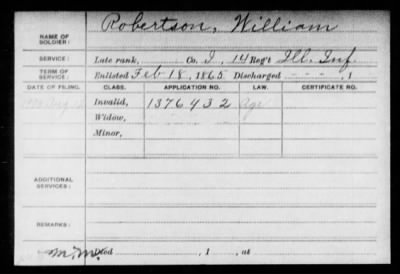 Robertson, William
NAME OF SOLDIER:
SERVICE: Late rank, Co. I, 14 Reg't Ill. Inf.
TERM OF SERVICE: Enlisted Feb 18, 1865 Discharged , 1
DATE OF FILING. CLASS. APPLICATION NO. LAW. CERTIFICATE NO.
Aug. Invalid, 1376432 Age
Widow,
Minor,
ADDITIONAL SERVICES:
REMARKS:
M.M. Died , 1 , at